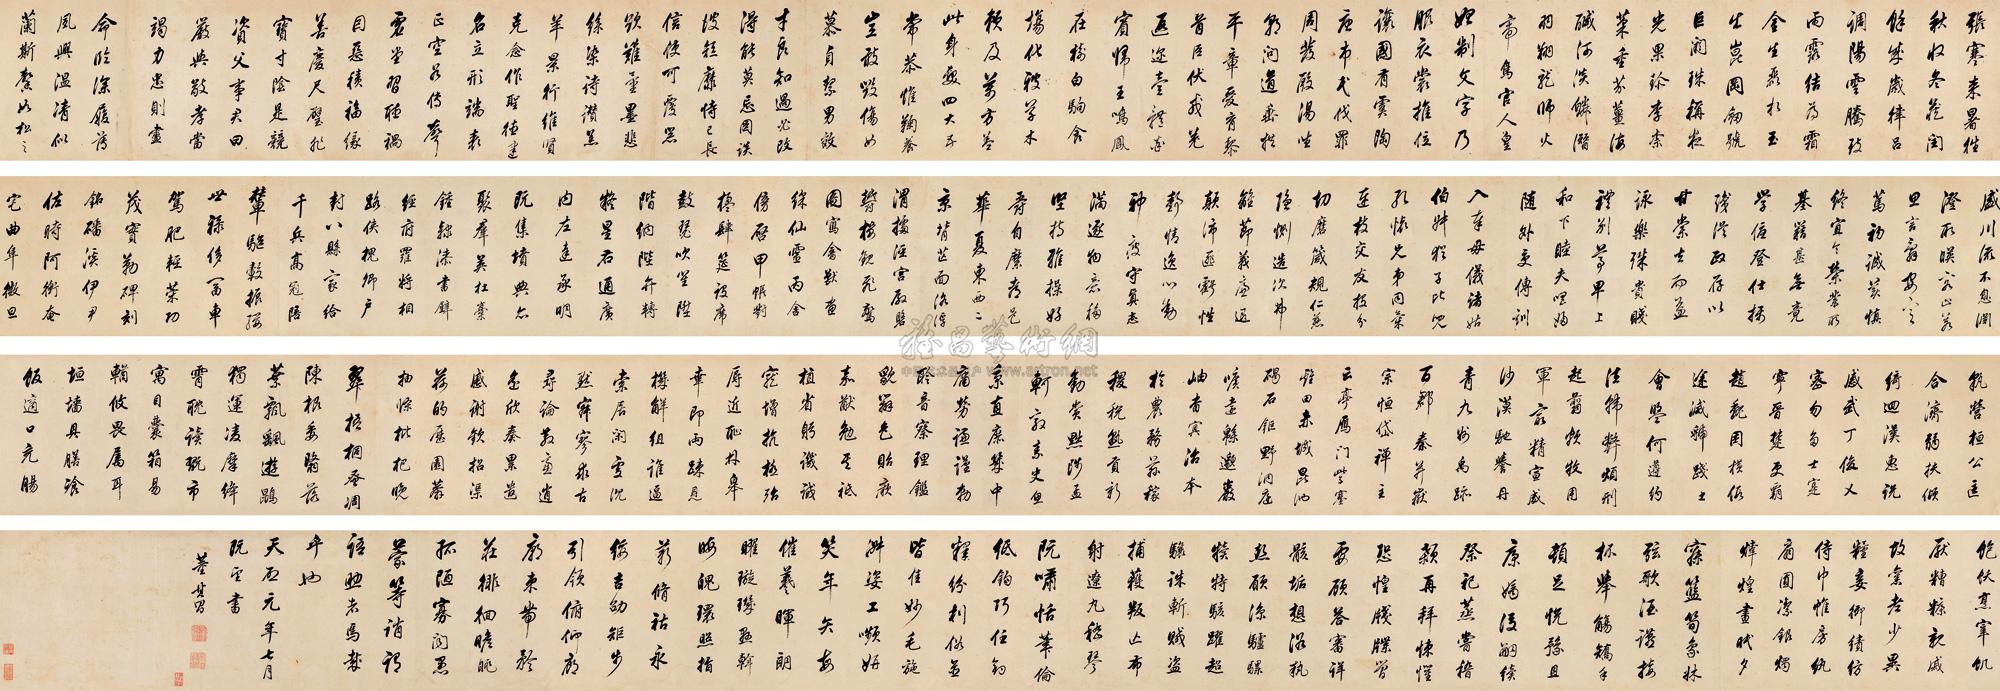 張寒来暑往
秋收冬藏閏
餘成歲律呂
調陽雲騰致
雨露結為霜
金生麗水玉
出崑岡劍號
巨闕珠稱夜
光果珍李柰
菜重芥薑海
鹹河淡鱗潛
羽翔龍師火
帝鳥官人皇
始制文字乃
服衣裳推位
讓國有虞陶
唐弔民伐罪
周發殷湯坐
朝問道垂拱
平章愛育黎
首臣伏戎羌
遐邇壹體率
賓歸王鳴鳳
在樹白駒食
場化被草木
賴及萬方蓋
此身髮四大五
常恭惟鞠養
豈敢毀傷女
慕貞絜男效
才良知過必改
得能莫忘罔談
彼短靡恃己長
信使可覆器
欲難量墨悲
絲染詩讚羔
羊景行維賢
克念作聖德建
名立形端表
正空谷傳聲
虛堂習聽禍
因惡積福緣
善慶尺璧非
寶寸陰是競
資父事君曰
嚴與敬孝當
竭力忠則盡
命臨深履薄
夙興溫凊似
蘭斯馨如松之
盛川流不息淵
澄取暎容止若
思言辭安定
篤初誠美慎
終宜令榮業所
基籍甚無竟
學優登仕攝
職從政存以
甘棠去而益
詠樂殊貴賤
禮別尊卑上
和下睦夫唱婦
隨外受傅訓
入奉母儀諸姑
伯叔猶子比兒
孔懷兄弟同氣
連枝交友投分
切磨箴規仁慈
隱惻造次弗
離節義廉退
顛沛匪虧性
靜情逸心動
神疲守真志
滿逐物意移
堅持雅操好
爵自縻都邑
華夏東西二
京背芒面洛浮
渭據涇宮殿盤
鬱樓觀飛驚
圖寫禽獸畫
綵仙靈丙舍
傍啟甲帳對
楹肆筵設席
鼓瑟吹笙陞
階納陛弁轉
疑星右通廣
內左達承明
既集墳典亦
聚羣英杜稾
鍾隸漆書壁
經府羅將相
路俠槐卿戶
封八縣家給
千兵高冠陪
輦驅轂振纓
世祿侈富車
駕肥輕策功
茂實勒碑刻
銘磻溪伊尹
佐時阿衡奄
宅曲阜微旦
孰營桓公匡
合濟弱扶傾
綺迴漢惠說
感武丁俊乂
密勿多士寔
寧晉楚更霸
趙魏困橫假
途滅虢踐土
會盟何遵約
法韓弊煩刑
起翦頗牧用
軍最精宣威
沙漠馳譽丹
青九州禹跡
百郡秦并嶽
宗恒岱禪主
云亭鴈門紫塞
雞田赤城昆池
碣石鉅野洞庭
曠遠緜邈巖
岫杳冥治本
於農務茲稼
稷稅熟貢新
勸賞黜陟孟
軻敦素史魚
秉直庶幾中
庸勞謙謹勅
聆音察理鑑
貌辯色貽厥
嘉猷勉其祗
植省躬譏誡
寵增抗極殆
辱近恥林皋
幸即兩疏見
機解組誰逼
索居閑處沉
默寂寥求古
尋論散慮逍
遙欣奏累遣
慼謝歡招渠
荷的歷園莽
抽條枇杷晚
翠梧桐蚤凋
陳根委翳落
葉飄颻遊鵾
獨運凌摩絳
霄耽讀翫市
寓目囊箱易
輶攸畏屬耳
垣墻具膳飡
飯適口充腸
飽飫烹宰飢
厭糟糠親戚
故舊老少異
糧妾御績紡
侍巾帷房紈
扇圓潔銀燭
煒煌晝眠夕
寐籃筍象牀
弦歌酒讌接
杯舉觴矯手
頓足悅豫且
康嫡後嗣續
祭祀蒸嘗稽
顙再拜悚懼
恐惶牋牒簡
要顧答審詳
骸垢想浴執
熱願涼驢騾
犢特駭躍超
驤誅斬賊盜
捕獲叛亡布
射遼丸嵇琴
阮嘯恬筆倫
紙鈞巧任釣
釋紛利俗並
皆佳妙毛施
淑姿工嚬妍
笑年矢每
催羲暉朗
曜璇璣懸斡
晦魄環照指
薪脩祜永
綏吉劭矩步
引領俯仰廊
廟束帶矜
莊徘徊瞻眺
孤陋寡聞愚
蒙等誚謂
語助者焉哉
乎也
天啟元年七月
既望書
董其昌
雅昌藝術網